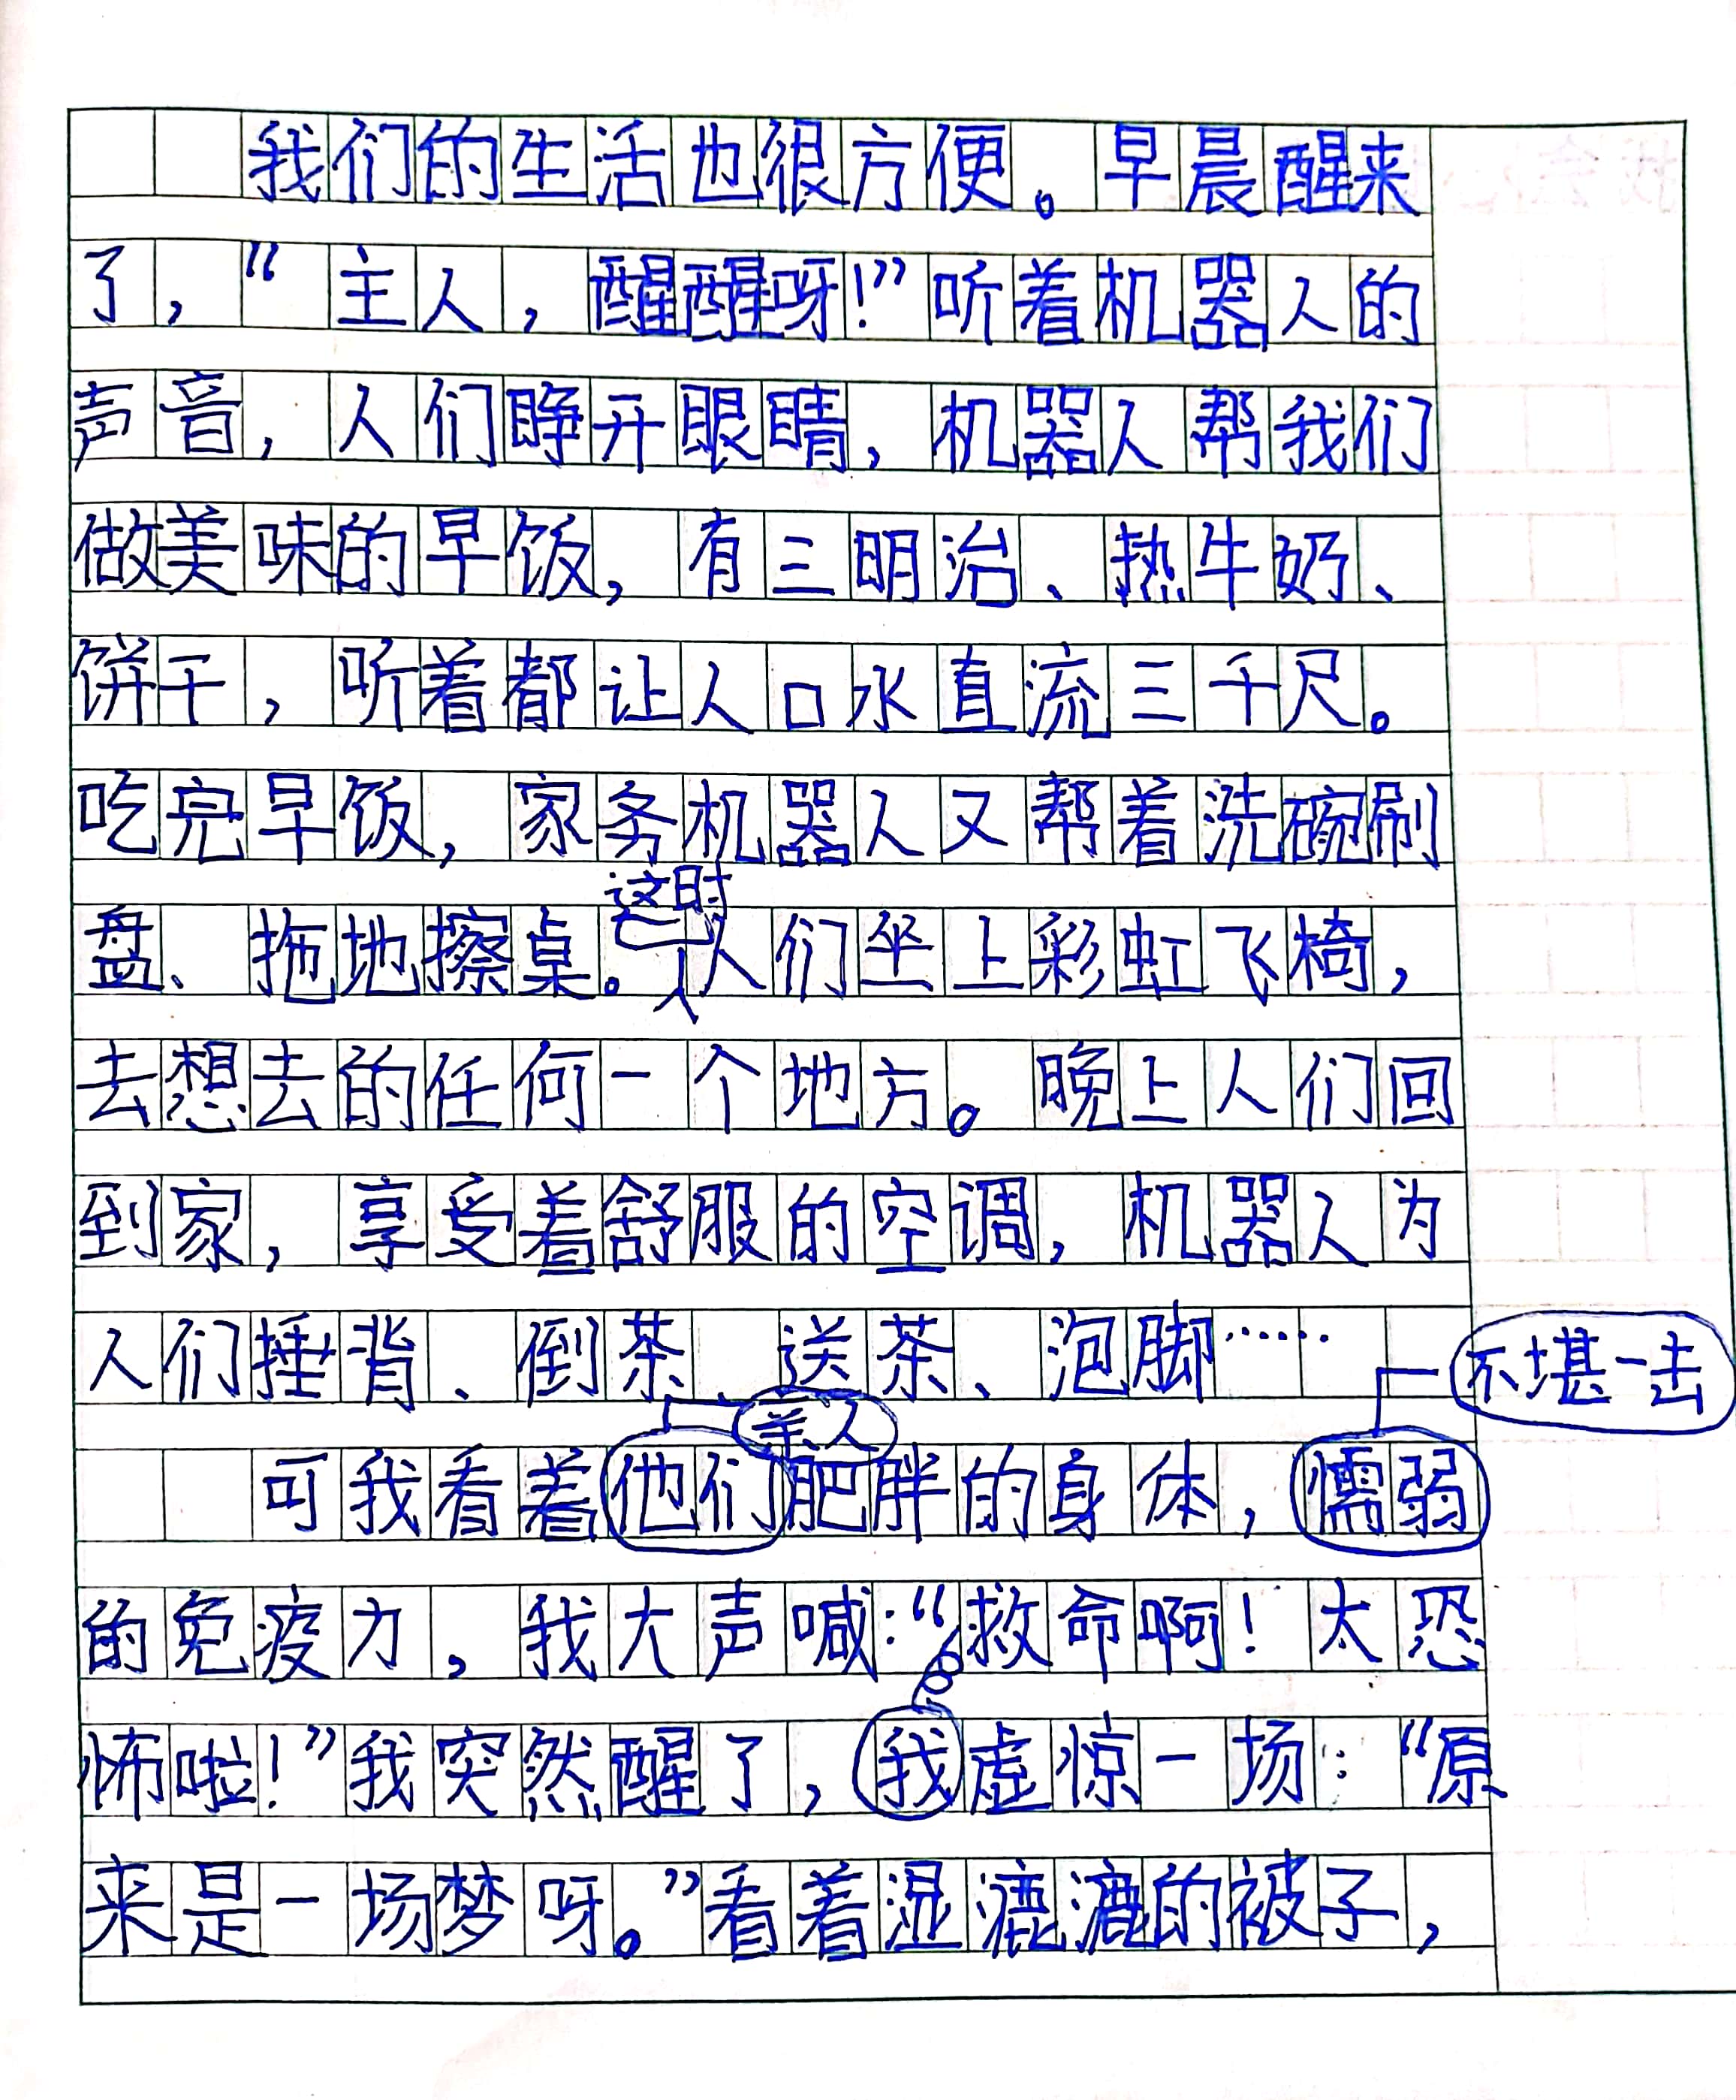 我们的生活也很方便。早晨醒来
了，“主人，醒醒呀！”听着机器人的
声音，人们睁开眼睛，机器人帮我们
做美味的早饭，有三明治、热牛奶、
饼干，听着都让人口水直流三千尺。
吃完早饭，家务机器人又帮着洗碗刷
这时
盘、拖地擦桌。人们坐上彩虹飞椅，
去想去的任何一个地方。晚上人们回
到家，享受着舒服的空调，机器人为
人们捶背、倒茶、送茶、泡脚……
不堪一击
可我看着他们肥胖的身体，懦弱
的免疫力，我大声喊：“救命啊！太恐
怖啦！”我突然醒了，我虚惊一场：“原
来是一场梦呀。”看着湿漉漉的被子，